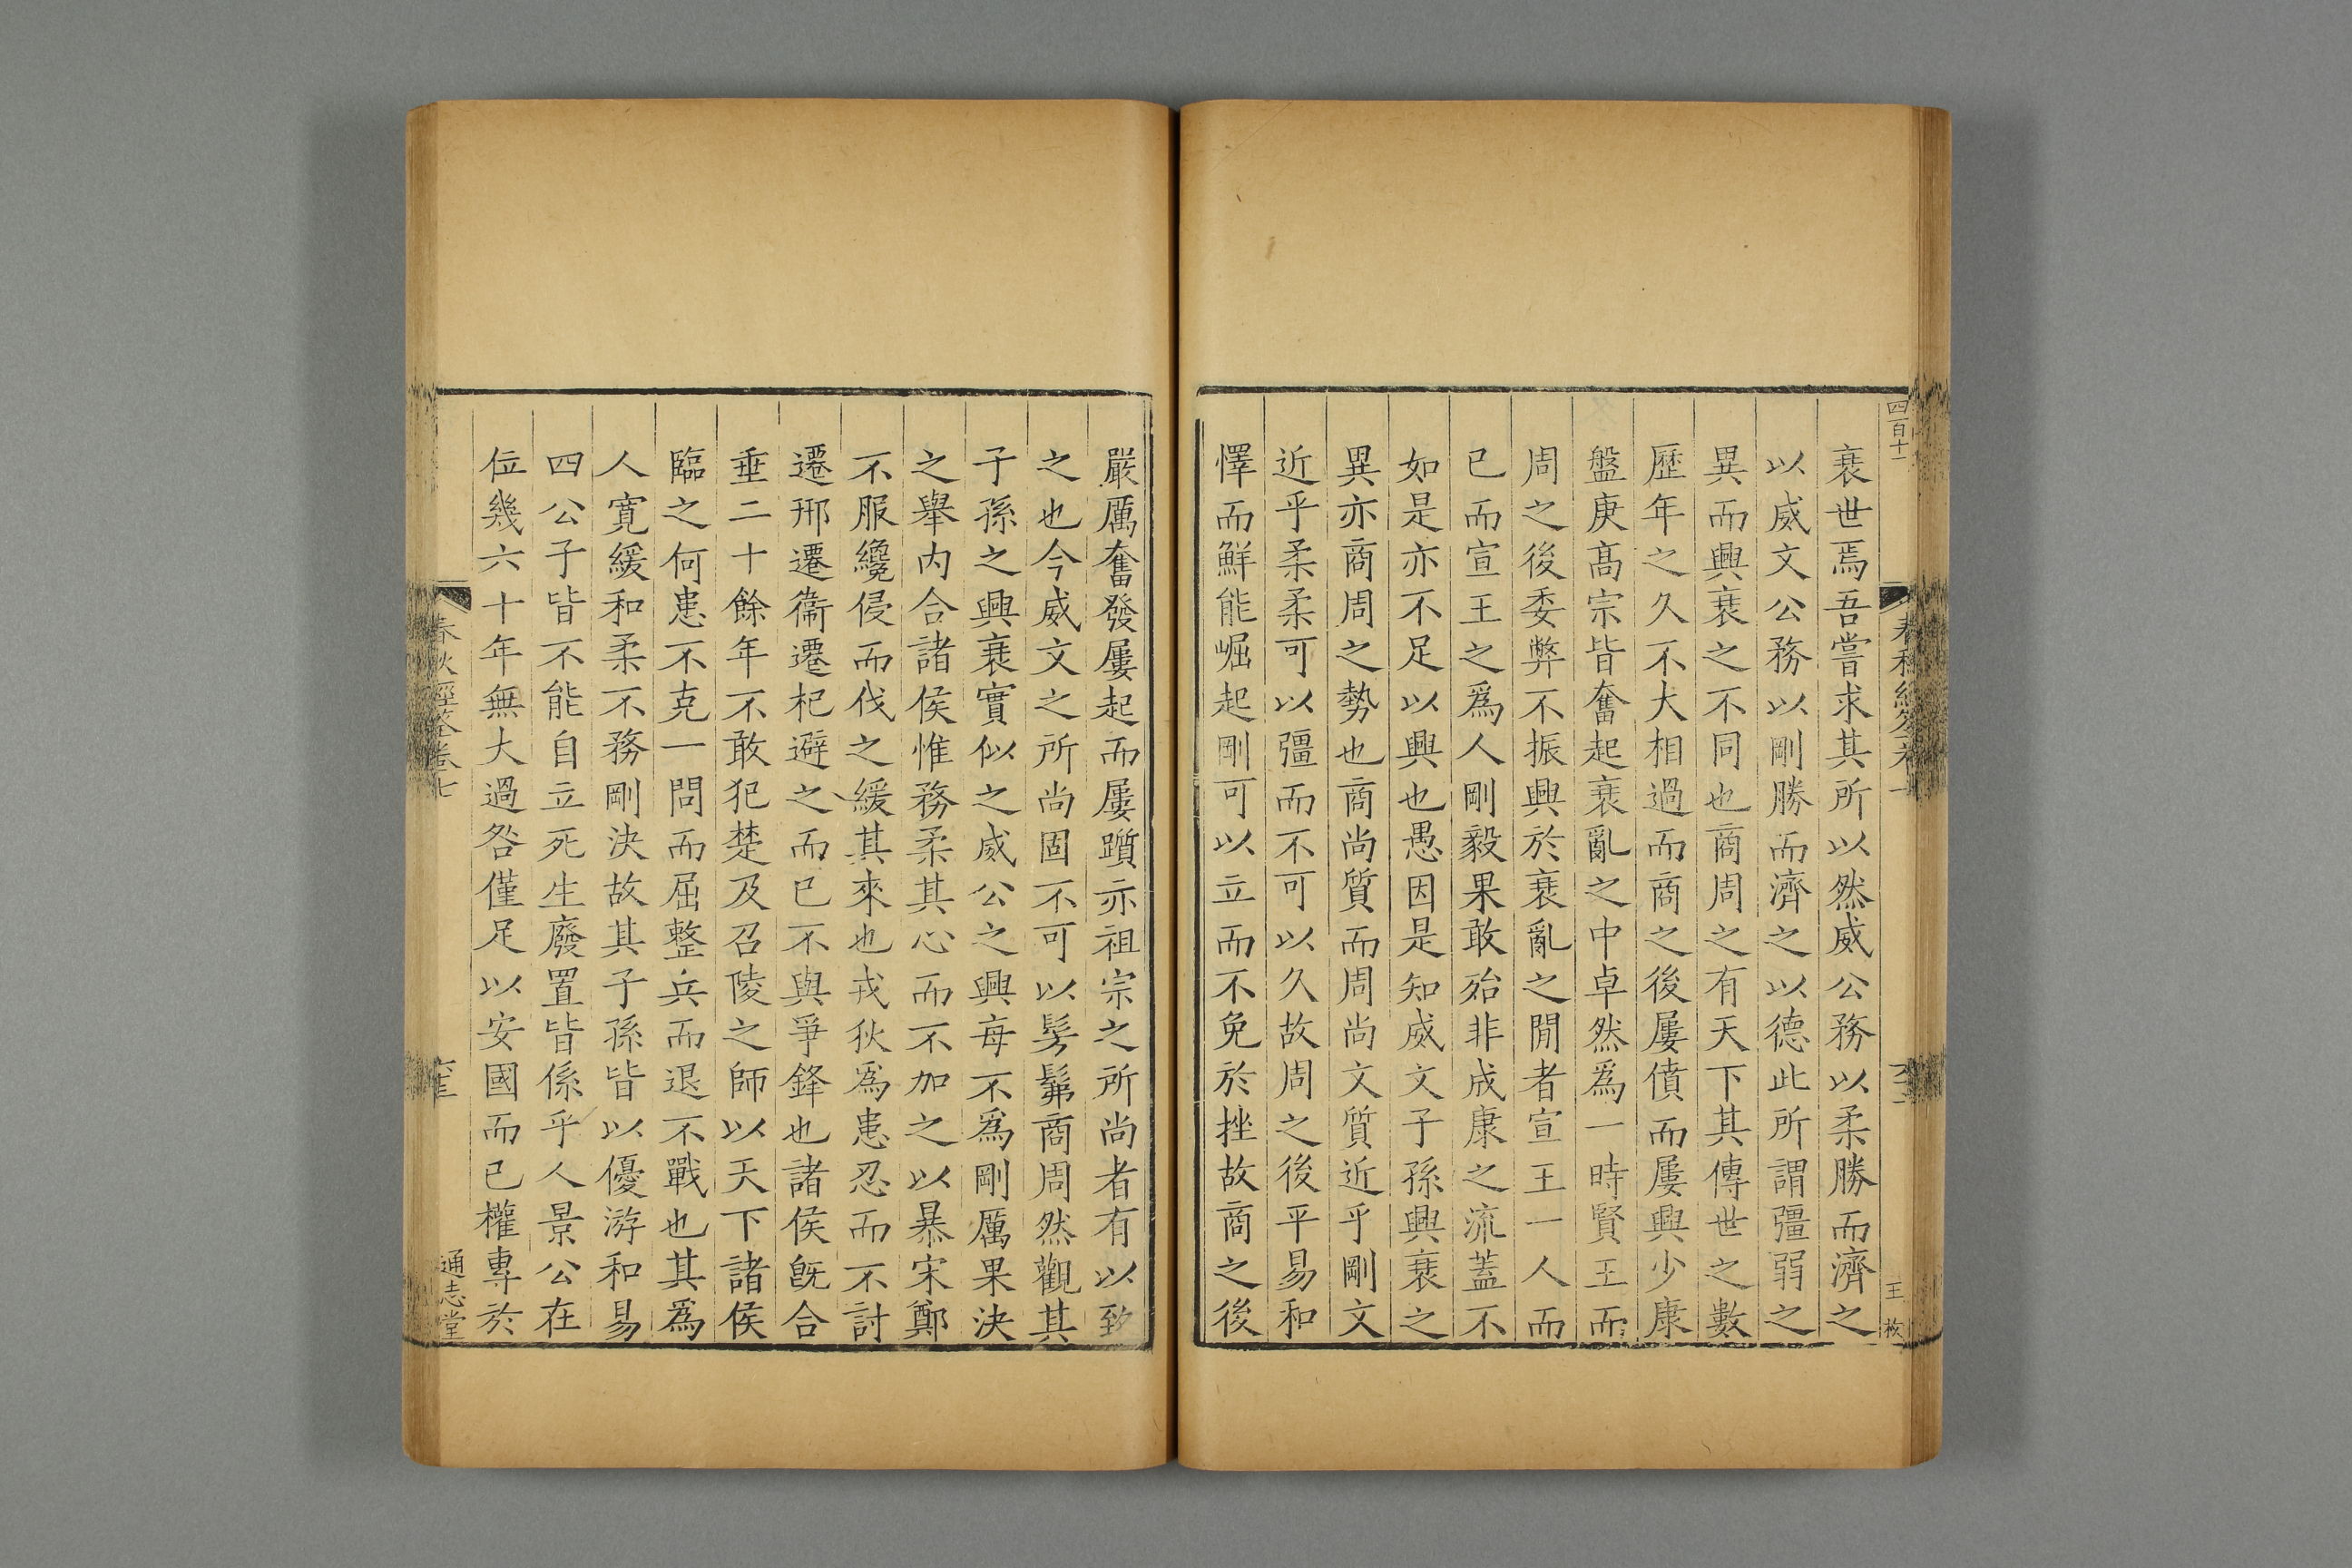 四百十一
衰世焉吾嘗求其所以然威公務以柔勝而濟之
以威文公務以剛勝而濟之以德此所謂彊弱之
異而興衰之不同也商周之有天下其傳世之數
歷年之久不大相過而商之後屢僨而屢興少康
盤庚高宗皆奮起衰亂之中卓然爲一時賢王而
周之後委弊不振興於衰亂之閒者宣王一人而
已而宣王之爲人剛毅果敢殆非成康之流蓋不
如是亦不足以興也愚因是知威文子孫興衰之
異亦商周之勢也商尚質而周尚文質近乎剛文
近乎柔柔可以彊而不可以久故周之後平易和
懌而鮮能崛起剛可以立而不免於挫故商之後
嚴厲奮發屢起而屢躓亦祖宗之所尚者有以致
之也今威文之所尚固不可以髣髴商周然觀其
子孫之興衰實似之威公之興每不爲剛厲果決
之舉内合諸侯惟務柔其心而不加之以暴宋鄭
不服纔侵而伐之緩其來也戎狄爲患忍而不討
遷邢遷衞遷杞避之而已不與爭鋒也諸侯既合
垂二十餘年不敢犯楚及召陵之師以天下諸侯
臨之何患不克一問而屈整兵而退不戰也其爲
人寛緩和柔不務剛決故其子孫皆以優游和易
四公子皆不能自立死生廢置皆係乎人景公在
位幾六十年無大過咎僅足以安國而已權專於
春秋經筌卷七
通志堂